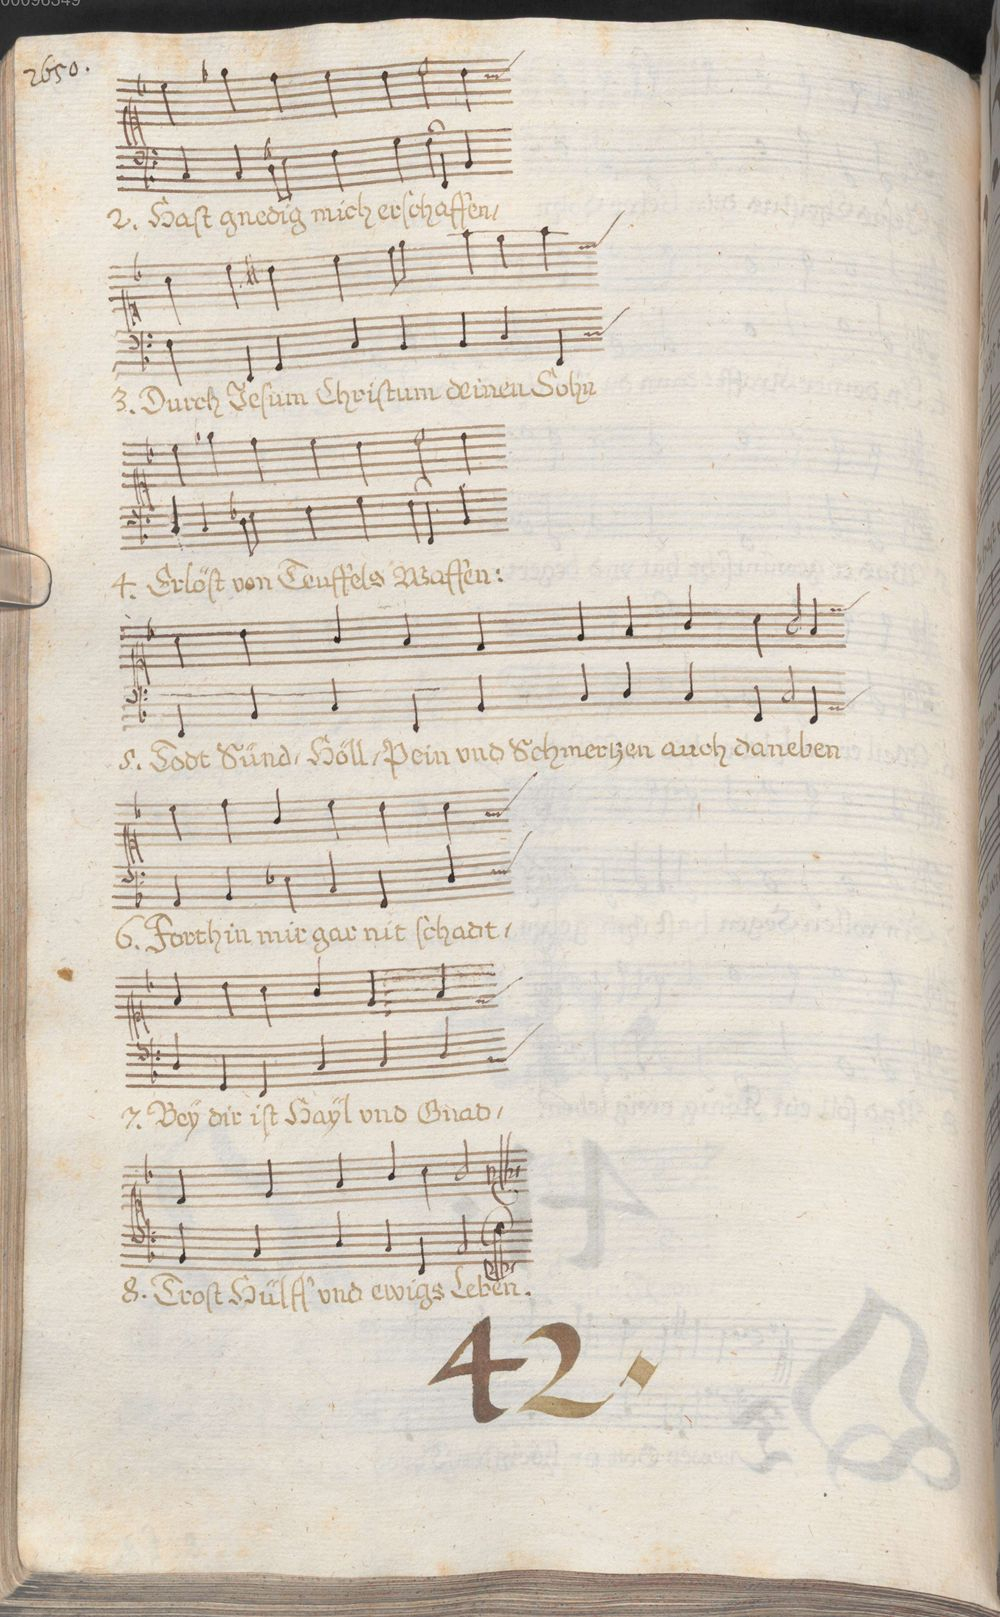 00096349
2650.
2. Hast gnedig mich erschaffen/
3. Durch Jesum Christum deinen Sohn
4. Erlöst von Teuffels Waffen:
5. Todt Sünd/ Höll/ Pein vnd Schmertzen auch daneben
6. Forthin mir gar nit schadt/
7. Beÿ dir ist Haÿl vnd Gnad/
8. Trost Hülff vnd ewigs Leben.
42.